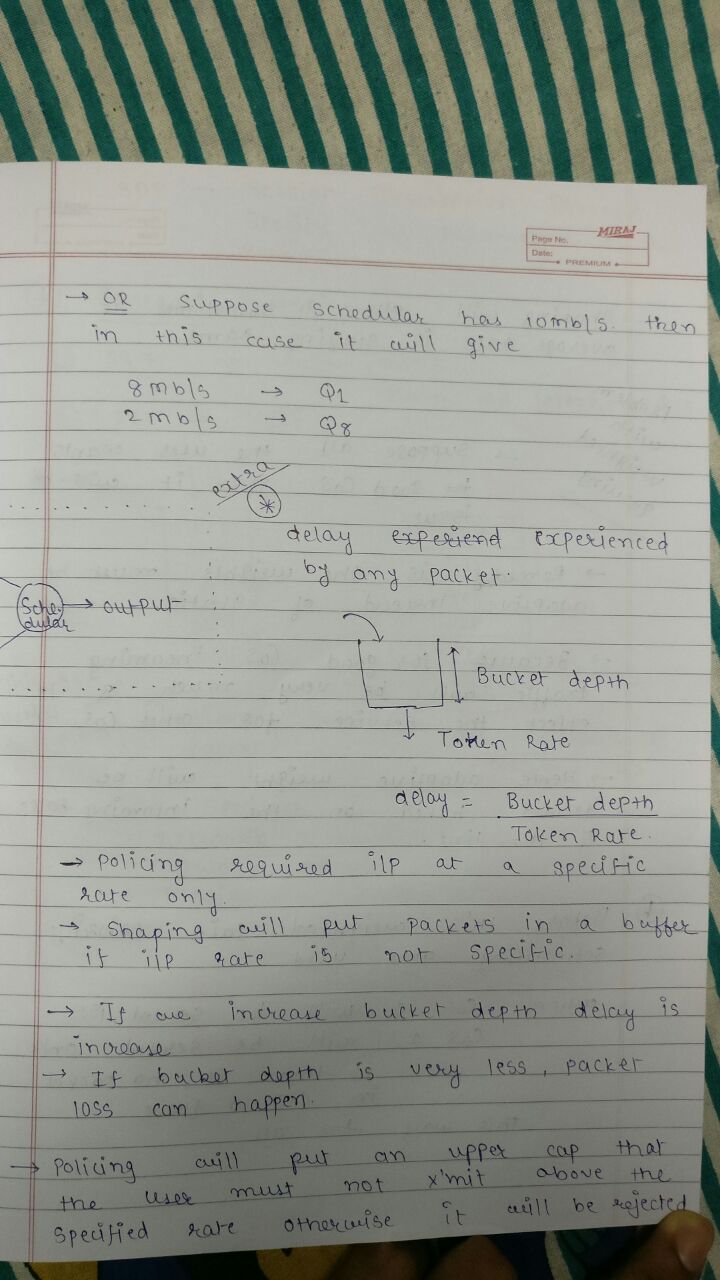 MIRAJ
Page No.
Date:
PREMIUM
→ OR suppose schedular has 10mb/s. then
in this case it will give
8mb/s → Q1
2mb/s → Q8
extra
*
delay experiend experienced
by any packet.
Sche-
dular → output
Bucket depth
Token Rate
delay = Bucket depth
Token Rate.
→ Policing required i/p at a specific
rate only.
→ Shaping will put packets in a buffer
if i/p rate is not specific.
→ If we increase bucket depth delay is
increase
→ If bucket depth is very less, packet
loss can happen.
→ Policing will put an upper cap that
the user must not x'mit above the
specified rate otherwise it will be rejected